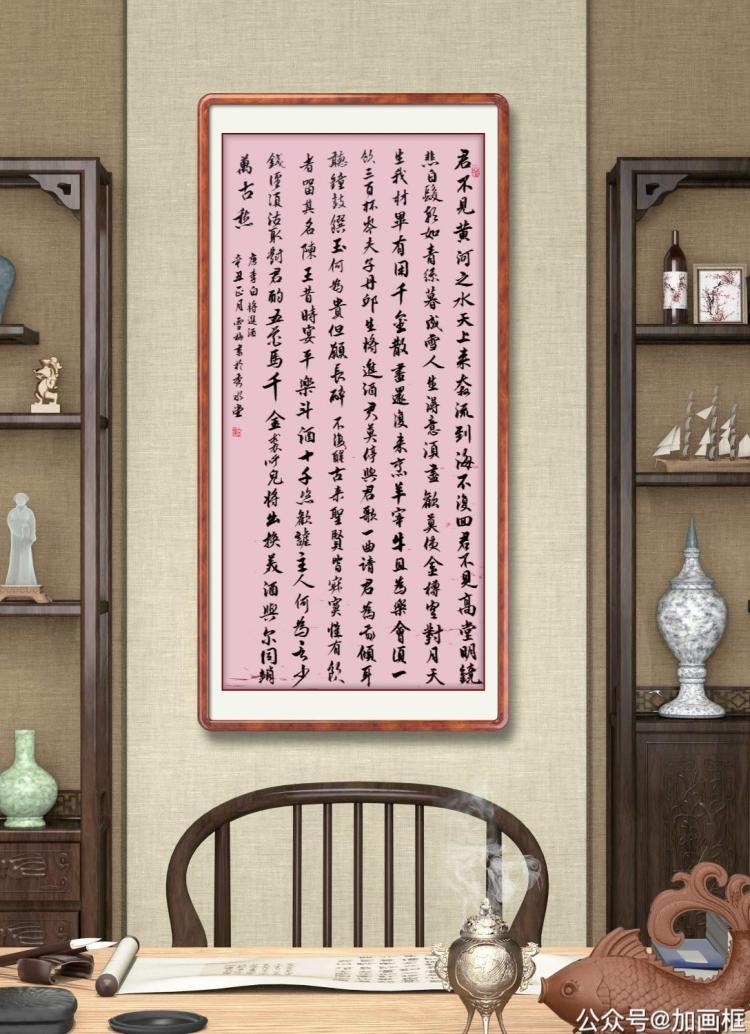 君不見黃河之水天上来奔流到海不復回君不見高堂明鏡
悲白髮朝如青絲暮成雪人生得意須盡歡莫使金樽空對月天
生我材畢有用千金散盡還復来烹羊宰牛且為樂會須一
飲三百杯岑夫子丹邱生將進酒君莫停與君歌一曲請君為我傾耳
聽鐘鼓饌玉何為貴但願長醉不復醒古来聖賢皆寂寞惟有飲
者留其名陳王昔時宴平樂斗酒十千恣歡謔主人何為言少
錢徑須沽取對君酌五花馬千金裘呼兒將出換美酒與尔同銷
萬古愁
唐李白將進酒
辛丑正月雪梅書於秀水堂
公众号@加画框